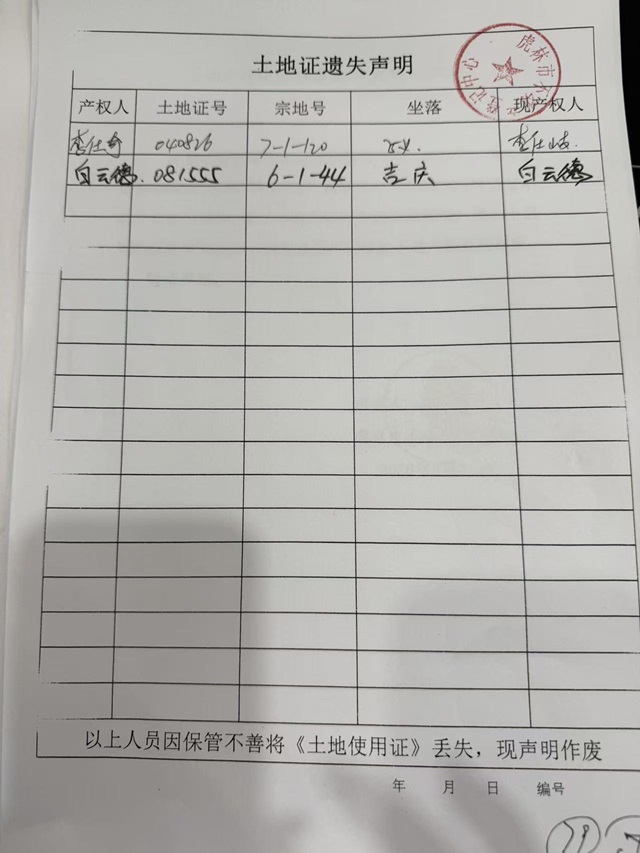 土地证遗失声明
虎林市不动产登记中心
产权人 土地证号 宗地号 坐落 现产权人
040826 7-1-120
白云德 081555 6-1-44 吉庆 白云德
以上人员因保管不善将《土地使用证》丢失，现声明作废
年 月 日 编号